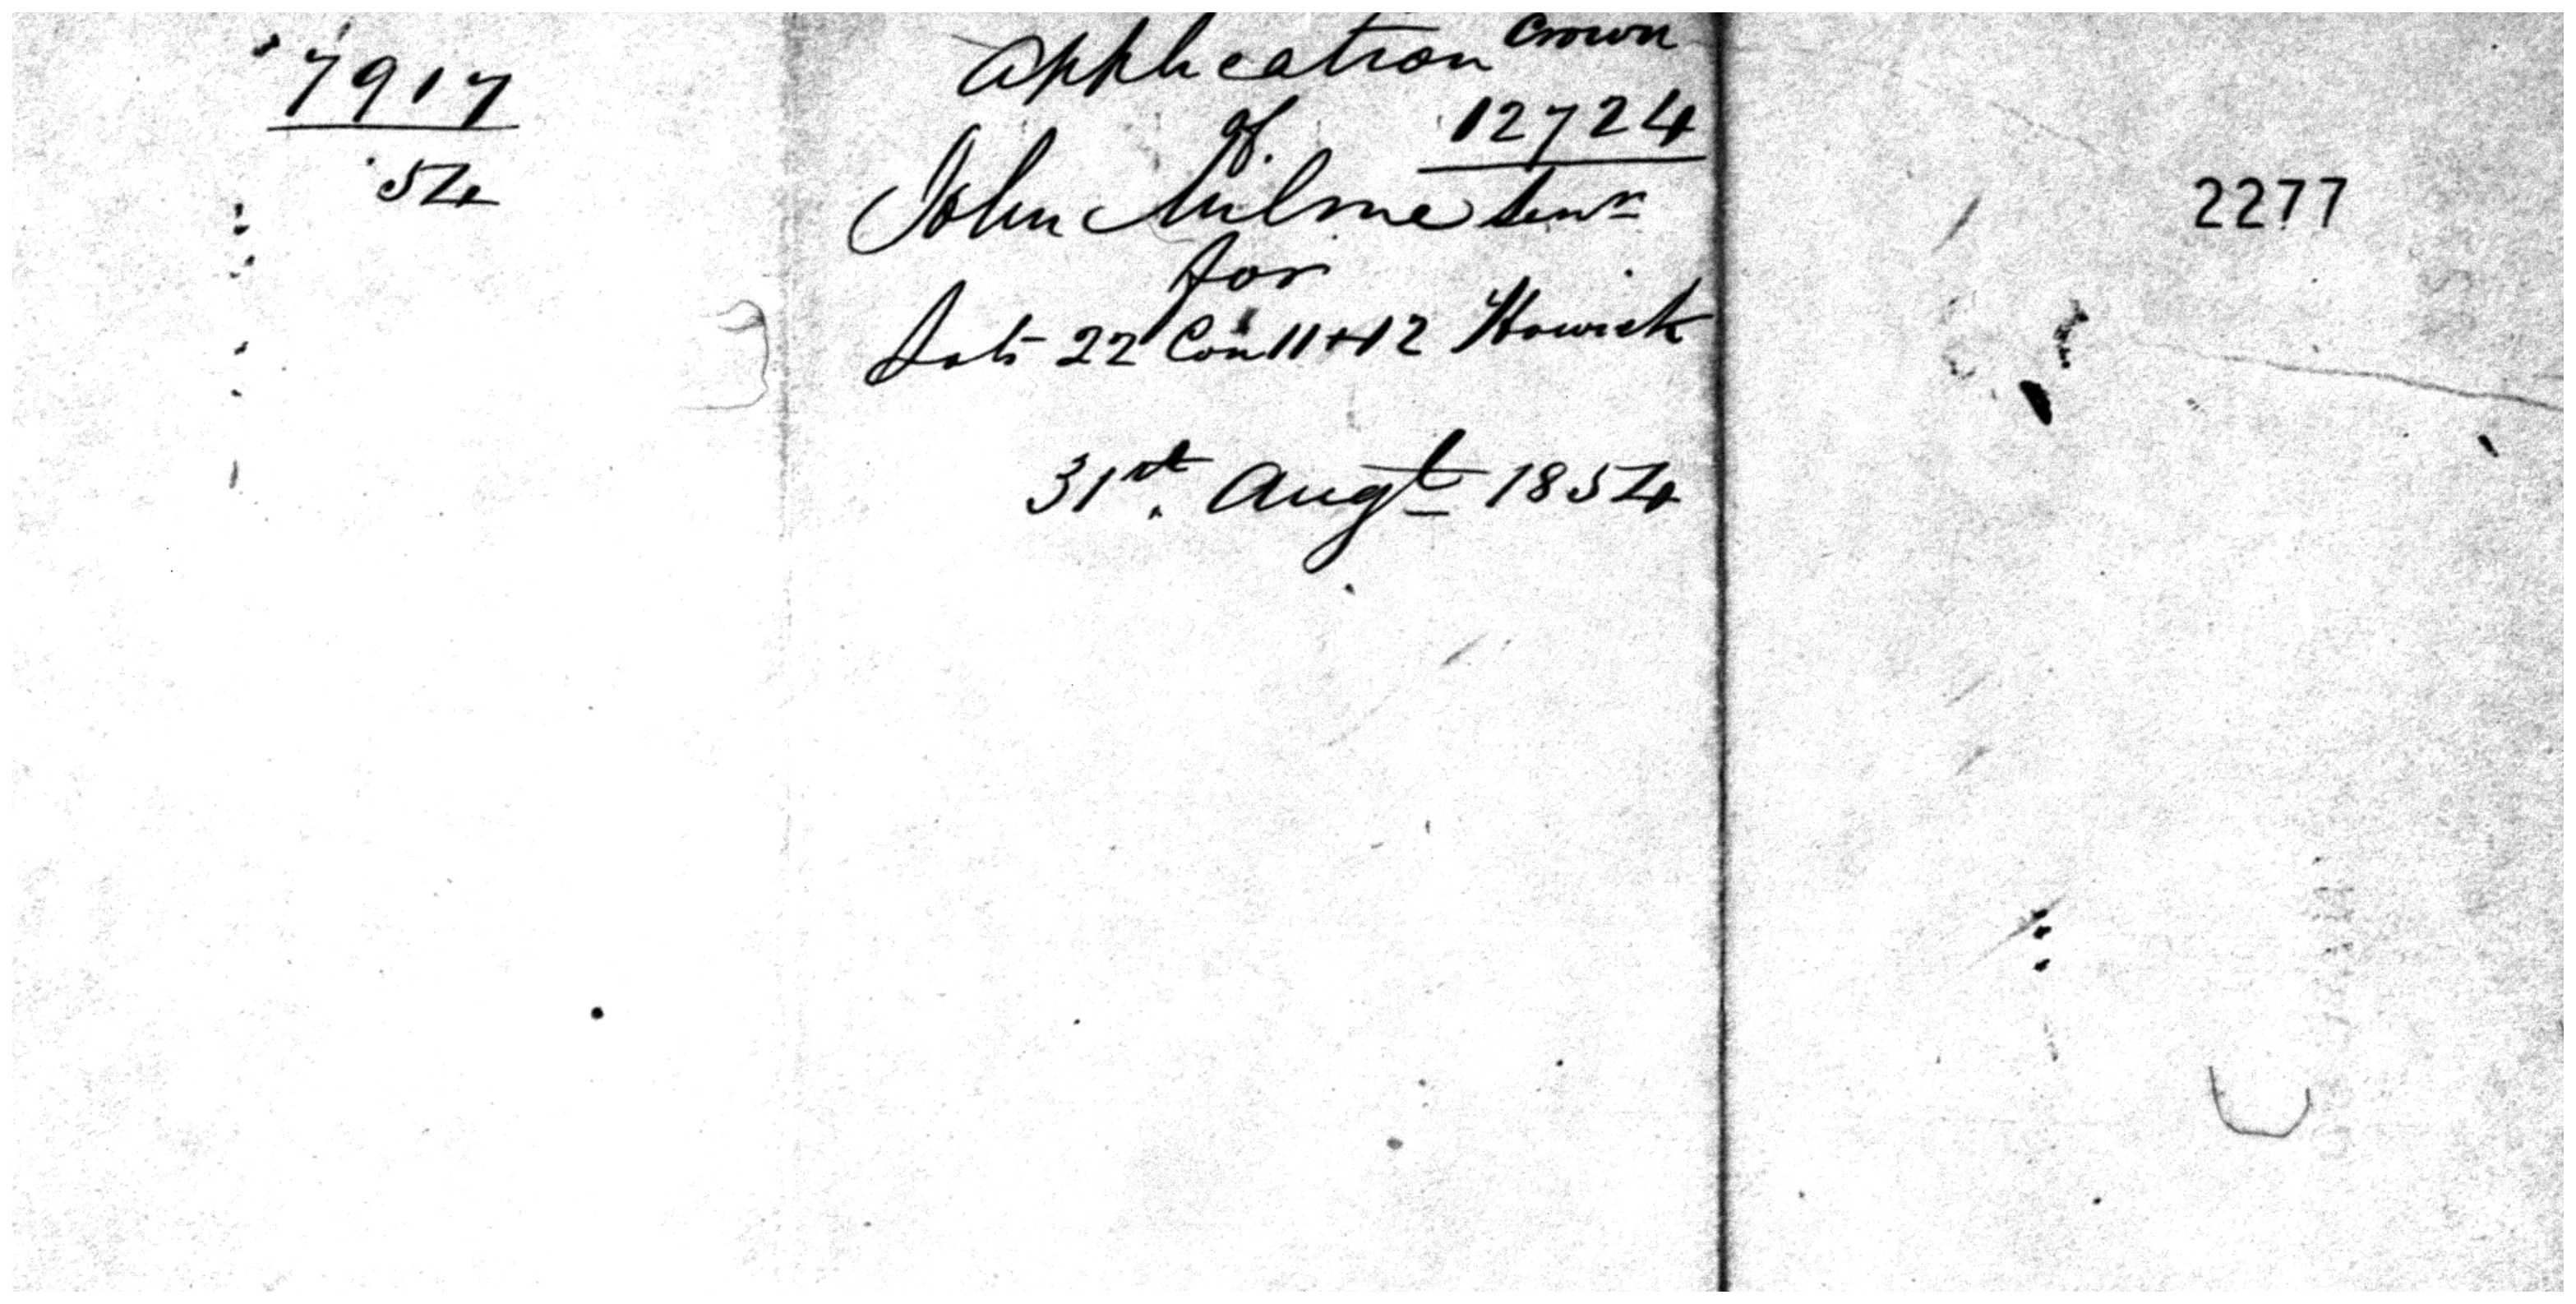 7917
54
Application Crown
of. 12724
John Milne Senr
for
Lots 22 Con 11+12 Howick
31st. Augt 1854
2277